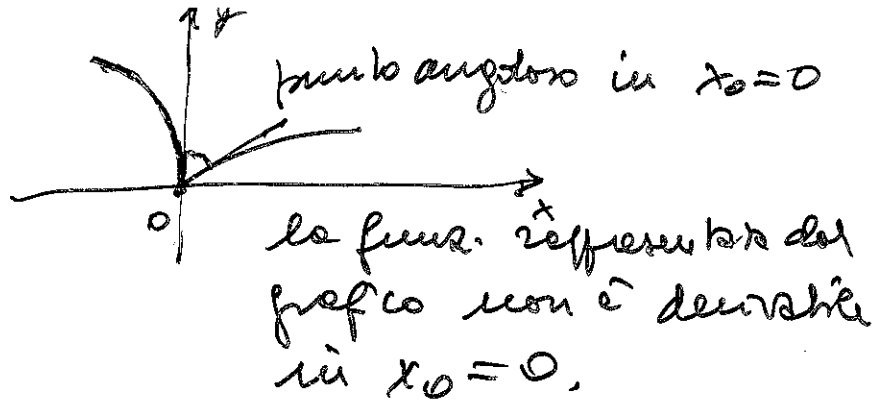 y
punto angoloso in x₀=0
0
x
la funz. rappresentata dal
grafico non è derivabile
in x₀=0.